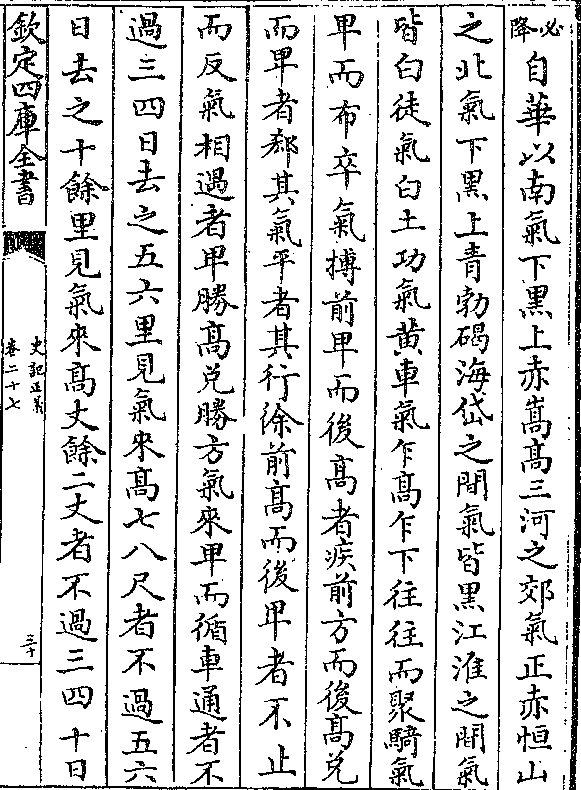 必降自華以南氣下黑上赤嵩髙三河之郊氣正赤恒山
之北氣下黑上青勃碣海岱之間氣皆黑江淮之間氣
皆白徒氣白土功氣黄車氣乍髙乍下往往而聚騎氣
卑而布卒氣摶前卑而後髙者疾前方而後髙兊
而卑者郄其氣平者其行徐前髙而後卑者不止
而反氣相遇者卑勝髙兊勝方氣來卑而循車通者不
過三四日去之五六里見氣來髙七八尺者不過五六
日去之十餘里見氣來髙丈餘二丈者不過三四十日
欽定四庫全書
史記正義
卷二十七
三十